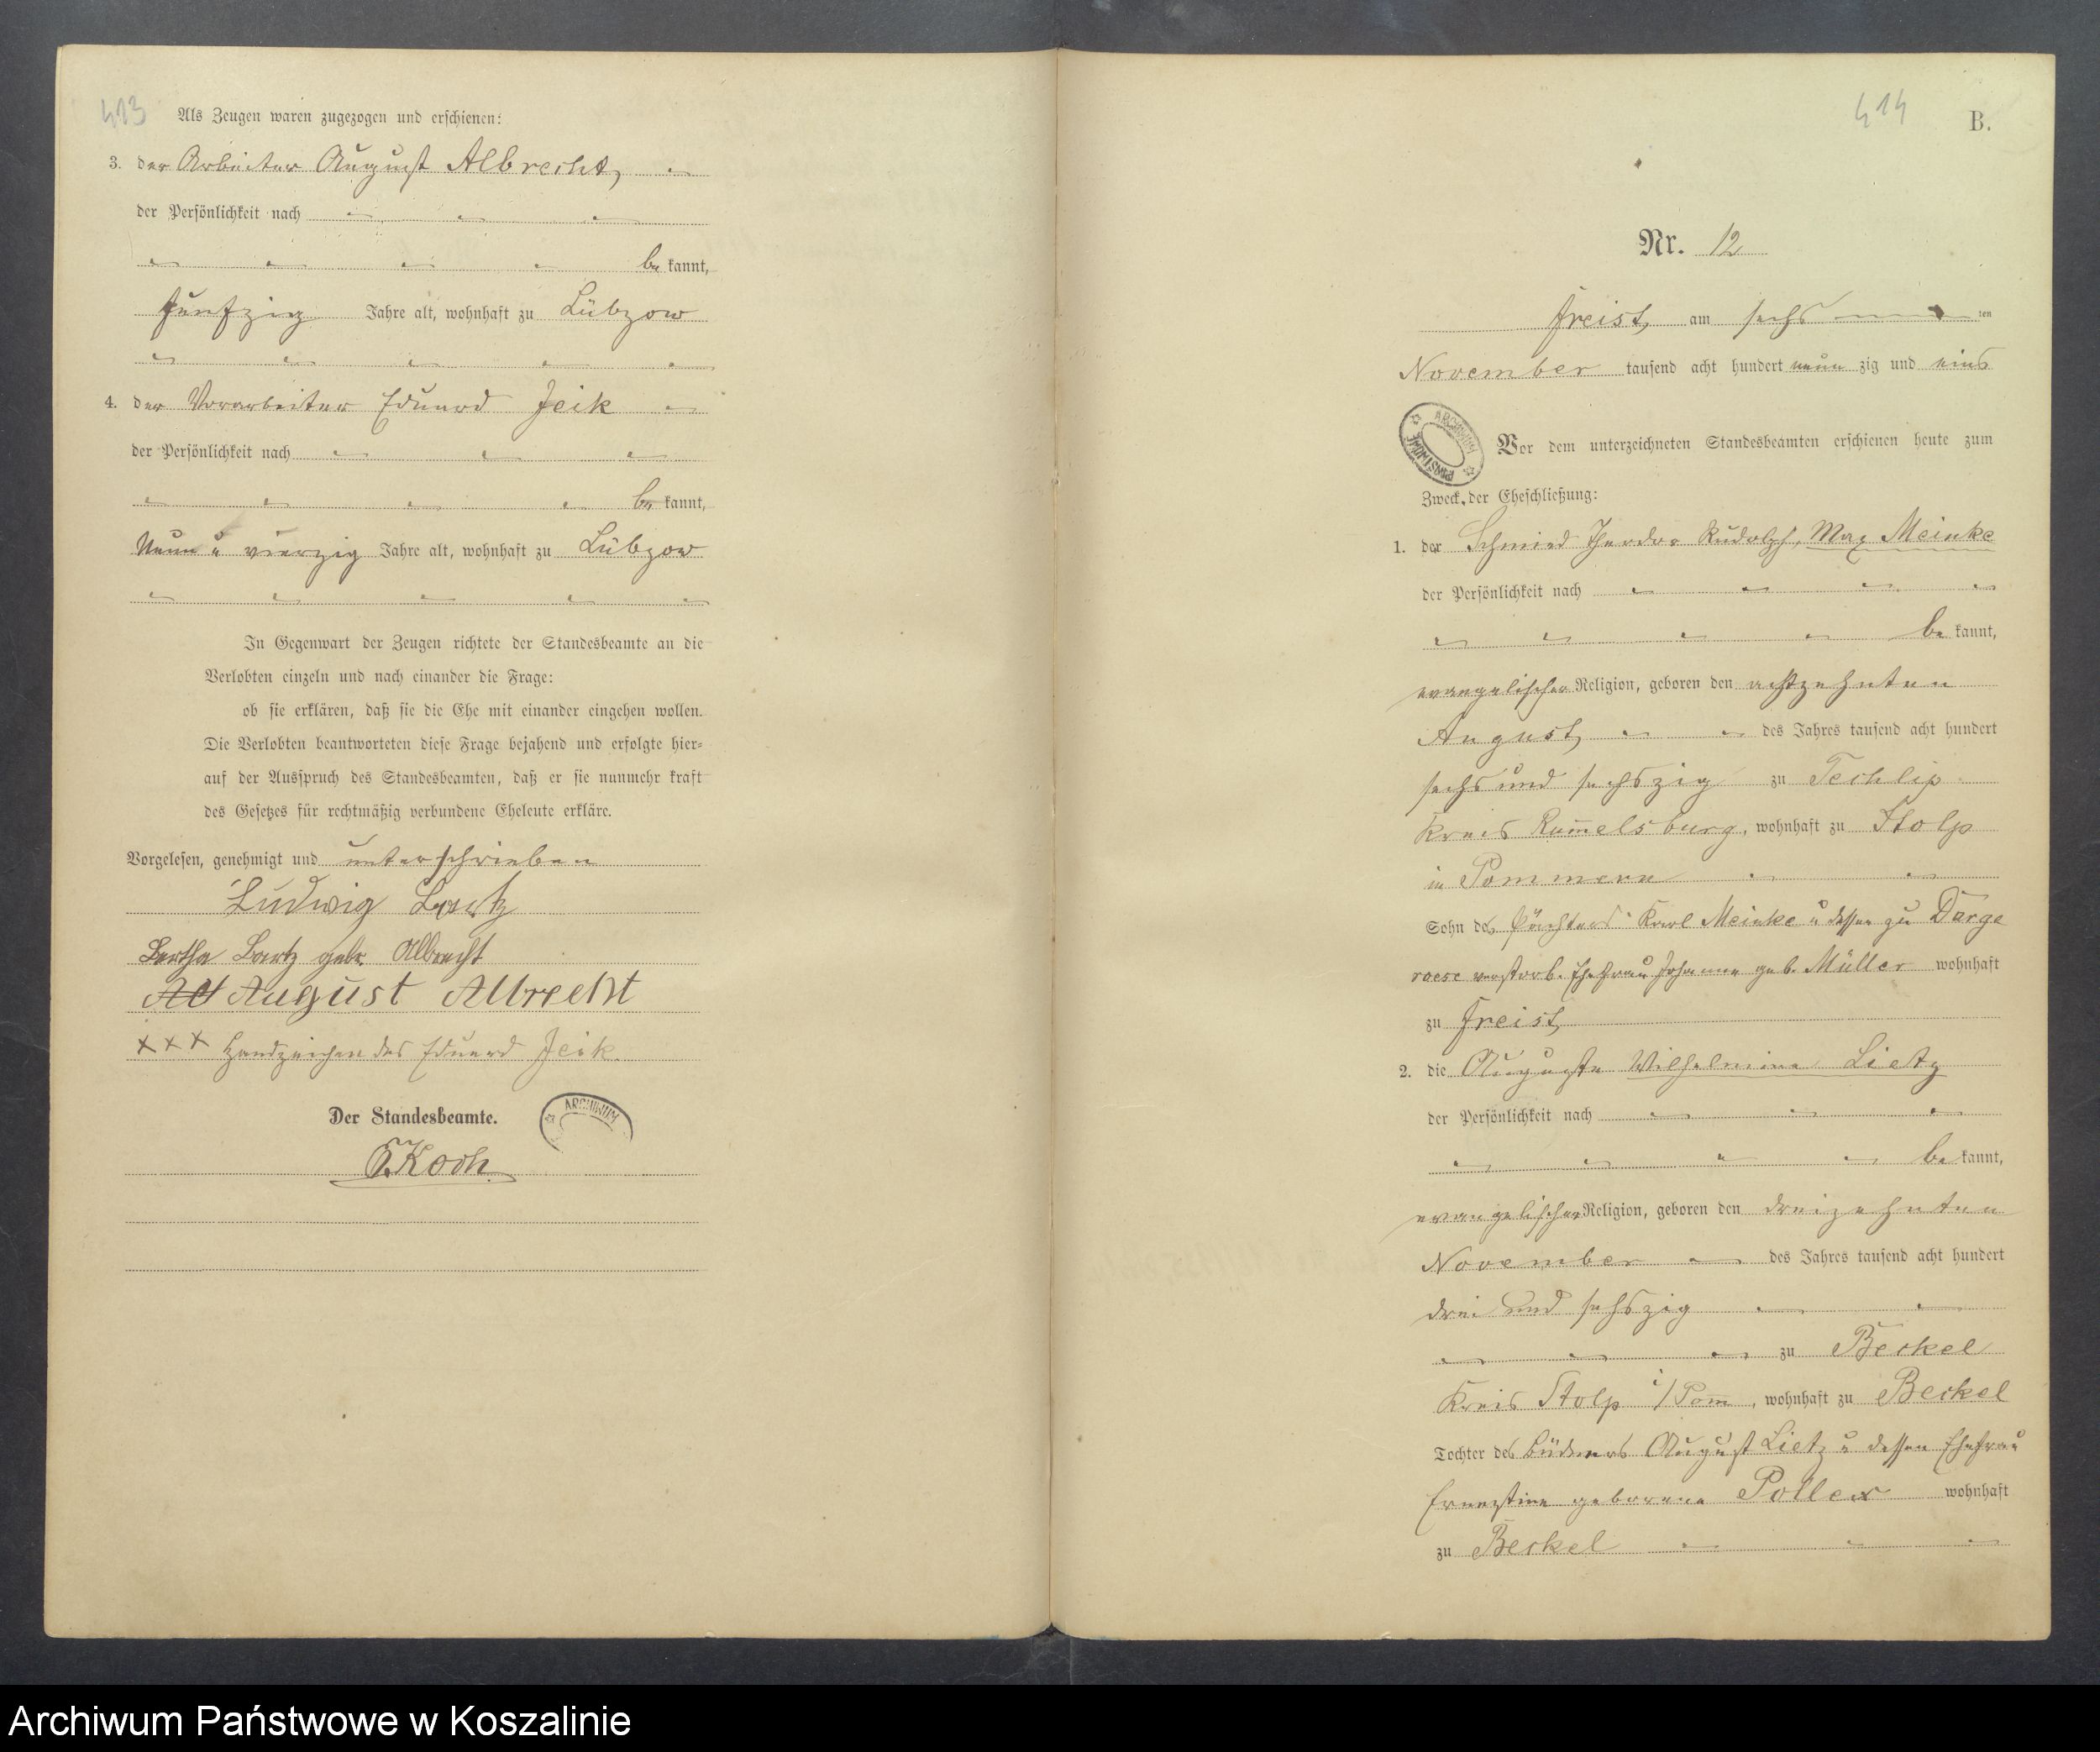 413
Als Zeugen waren zugezogen und erschienen:
3. der Arbeiter August Albrecht,
der Persönlichkeit nach
be kannt,
fünfzig Jahre alt, wohnhaft zu Lübzow
4. der Vorarbeiter Eduard Jeik
der Persönlichkeit nach
be kannt,
Neun u vierzig Jahre alt, wohnhaft zu Lübzow
In Gegenwart der Zeugen richtete der Standesbeamte an die
Verlobten einzeln und nach einander die Frage:
ob sie erklären, daß sie die Ehe mit einander eingehen wollen.
Die Verlobten beantworteten diese Frage bejahend und erfolgte hier-
auf der Ausspruch des Standesbeamten, daß er sie nunmehr kraft
des Gesetzes für rechtmäßig verbundene Eheleute erkläre.
Vorgelesen, genehmigt und unterschrieben
Ludwig Bartz
Bertha Bartz geb. Albrecht
August Albrecht
+++ Handzeichen des Eduard Jeik.
Der Standesbeamte.
ARCHIWUM
Koch.
414
B.
Nr. 12
Freist, am sechs ten
November tausend acht hundert neun zig und eins
ARCHIWUM PAŃSTWOWE
Vor dem unterzeichneten Standesbeamten erschienen heute zum
Zweck der Eheschließung:
1. der Schmied Theodor Rudolph, Max Meinke
der Persönlichkeit nach
be kannt,
evangelischer Religion, geboren den achtzehnten
August, des Jahres tausend acht hundert
sechs und sechszig zu Techlip
Kreis Rummelsburg, wohnhaft zu Stolp
in Pommern
Sohn des Pächters Karl Meinke u dessen zu Darge
roese verstorb. Ehefrau Johanne geb. Müller wohnhaft
zu Freist,
2. die Auguste Wilhelmine Lietz
der Persönlichkeit nach
be kannt,
evangelischer Religion, geboren den dreizehnten
November des Jahres tausend acht hundert
drei und sechszig
zu Beckel
Kreis Stolp i/Pomm, wohnhaft zu Beckel
Tochter des Büdners August Lietz u dessen Ehefrau
Ernestine geborene Pollex wohnhaft
zu Beckel
Archiwum Państwowe w Koszalinie